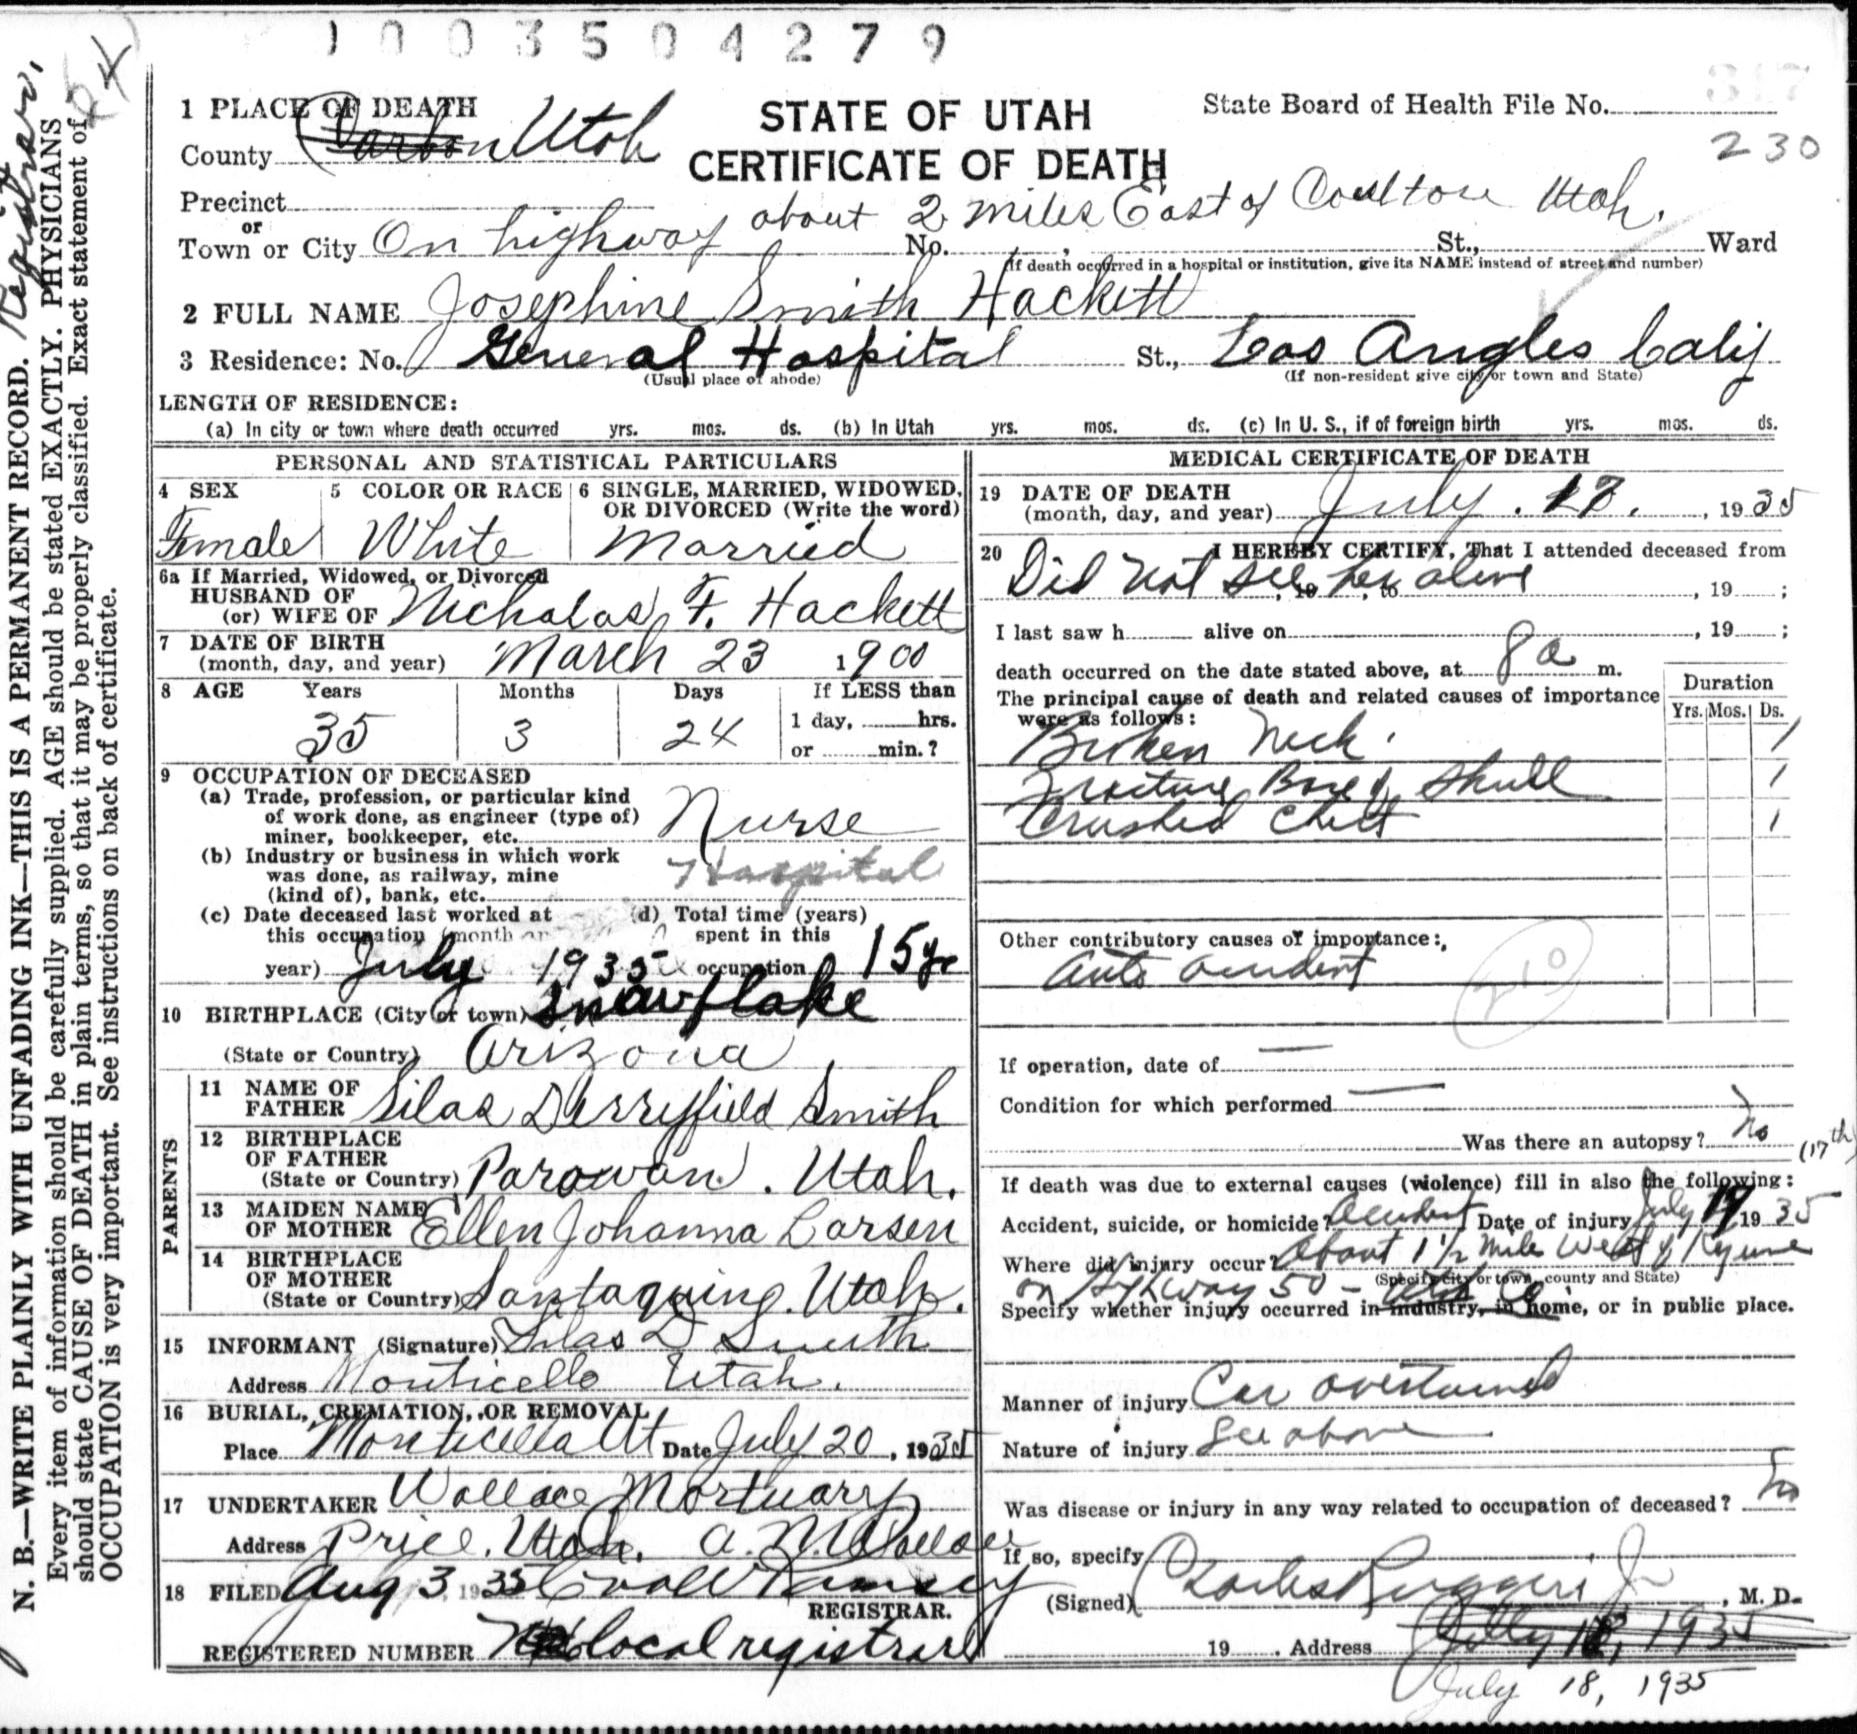 1003504279
317
1 PLACE OF DEATH
STATE OF UTAH
State Board of Health File No.
County Carbon Utah
CERTIFICATE OF DEATH
230
Precinct
or
Town or City On highway about 2 miles East of Utah. No. , St., Ward
(If death occurred in a hospital or institution, give its NAME instead of street and number)
2 FULL NAME Josephine Smith Hackett
3 Residence: No. General Hospital St., Los Angles Calif
(Usual place of abode) (If non-resident give city or town and State)
LENGTH OF RESIDENCE:
(a) In city or town where death occurred yrs. mos. ds. (b) In Utah yrs. mos. ds. (c) In U. S., if of foreign birth yrs. mos. ds.
PERSONAL AND STATISTICAL PARTICULARS
4 SEX 5 COLOR OR RACE 6 SINGLE, MARRIED, WIDOWED,
OR DIVORCED (Write the word)
Female White Married
6a If Married, Widowed, or Divorced
HUSBAND OF
(or) WIFE OF Nicholas F. Hackett
7 DATE OF BIRTH
(month, day, and year) March 23 1900
8 AGE Years Months Days If LESS than
35 3 24 1 day, hrs.
or min.?
9 OCCUPATION OF DECEASED
(a) Trade, profession, or particular kind
of work done, as engineer (type of)
miner, bookkeeper, etc. Nurse
(b) Industry or business in which work
was done, as railway, mine
(kind of), bank, etc. Hospital
(c) Date deceased last worked at (d) Total time (years)
this occupation (month spent in this
year) July 1935 occupation 15 yr
10 BIRTHPLACE (City or town) Snowflake
(State or Country) Arizona
PARENTS
11 NAME OF
FATHER Silas Derryfield Smith
12 BIRTHPLACE
OF FATHER
(State or Country) Parowan. Utah.
13 MAIDEN NAME
OF MOTHER Ellen Johanna Larsen
14 BIRTHPLACE
OF MOTHER
(State or Country) Santaquing. Utah.
15 INFORMANT (Signature) Silas D Smith
Address Monticello Utah.
16 BURIAL, CREMATION, OR REMOVAL
Place Monticello Ut Date July 20, 1935
17 UNDERTAKER Wallace Mortuary
Address Price, Utah. A. N. Wallace
18 FILED Aug 3, 1935 Ramsey
REGISTRAR.
REGISTERED NUMBER No local registrar
MEDICAL CERTIFICATE OF DEATH
19 DATE OF DEATH
(month, day, and year) July. 17. , 1935
20 I HEREBY CERTIFY, That I attended deceased from
Did not see her alive , 19 , to , 19 ;
I last saw h alive on , 19 ;
death occurred on the date stated above, at 8 a m.
The principal cause of death and related causes of importance
were as follows:
Duration
Yrs. Mos. Ds.
Broken Neck. 1
Fracture Base of Skull 1
Crushed Chest 1
Other contributory causes of importance:
Auto accident
210
If operation, date of —
Condition for which performed —
Was there an autopsy? No
(17th)
If death was due to external causes (violence) fill in also the following:
Accident, suicide, or homicide? Accident Date of injury July 19 35
Where did injury occur? About 1 1/2 Mile West of Kyune
(Specify city or town, county and State)
on Highway 50 - Utah Co
Specify whether injury occurred in industry, in home, or in public place.
Manner of injury Car overturned
Nature of injury See above
Was disease or injury in any way related to occupation of deceased? No
If so, specify
(Signed) Charles Ruggeri Jr , M. D.
19 . Address July 18, 1935
July 18, 1935
N. B.—WRITE PLAINLY WITH UNFADING INK—THIS IS A PERMANENT RECORD. Registrar.
Every item of information should be carefully supplied. AGE should be stated EXACTLY. PHYSICIANS
should state CAUSE OF DEATH in plain terms, so that it may be properly classified. Exact statement of
OCCUPATION is very important. See instructions on back of certificate.